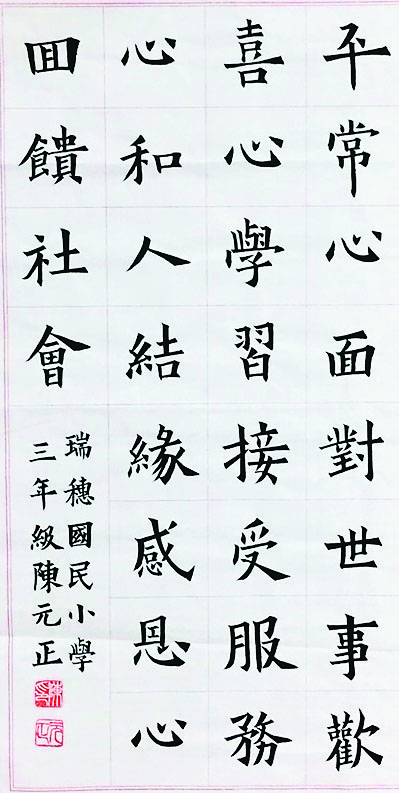 平常心面對世事歡
喜心學習接受服務
心和人結緣感恩心
回饋社會
瑞穗國民小學
三年級陳元正